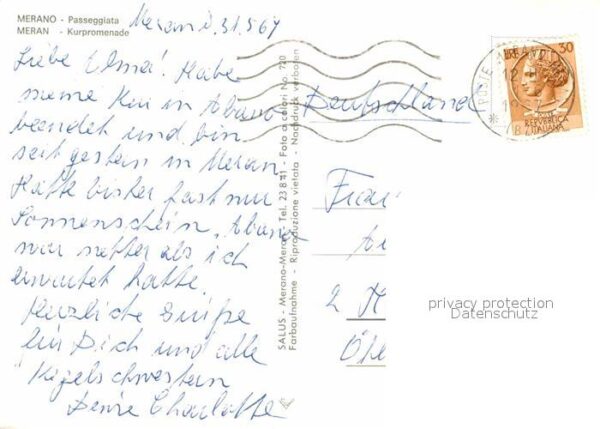 MERANO - Passeggiata
MERAN - Kurpromenade
Meran d. 31.5.67
Liebe Erna! Habe
meine Kur in Abano
beendet und bin
seit gestern in Meran.
Hatte bisher fast nur
Sonnenschein, Abano
war netter als ich
erwartet hatte.
Herzliche Grüße
an Dich und alle
Kegelschwestern
Deine Charlotte
SALUS - Merano-Meran - Tel. 23 8 41 - Foto a colori No. 720
Farbaufnahme - Riproduzione vietata - Nachdruck verboten
POSTE
1967
30
LIRE
REPVBBLICA
ITALIANA
Deutschland
Frau
2 H
privacy protection
Datenschutz